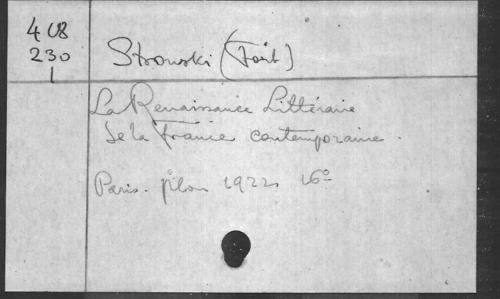 408
230
1
Strowski (Fort)
La Renaissance Littéraire
de la France contemporaine.
Paris. plon 1922 16°